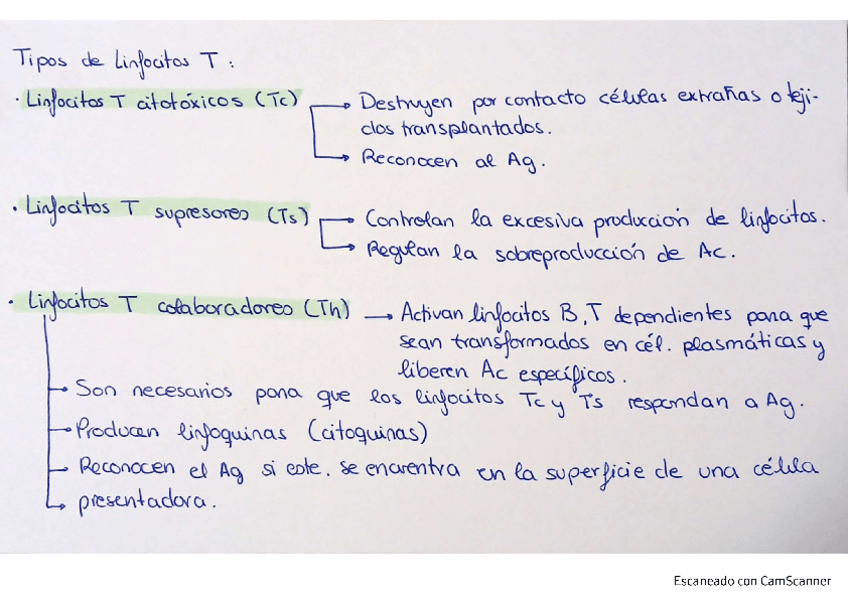 Tipos de Linfocitos T :
· Linfocitos T citotóxicos (Tc) → Destruyen por contacto células extrañas o teji-
dos transplantados.
→ Reconocen al Ag.
· Linfocitos T supresores (Ts) → Controlan la excesiva producción de linfocitos.
→ Regulan la sobreproducción de Ac.
· Linfocitos T colaboradores (Th) → Activan linfocitos B, T dependientes para que
sean transformados en cél. plasmáticas y
liberen Ac específicos.
→ Son necesarios para que los linfocitos Tc y Ts respondan a Ag.
→ Producen linfoquinas (citoquinas)
→ Reconocen el Ag si este. se encuentra en la superficie de una célula
→ presentadora.
Escaneado con CamScanner